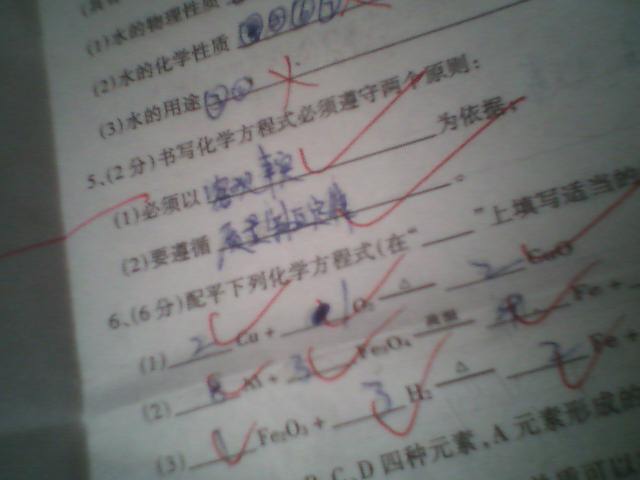 (1)水的物理性质
(2)水的化学性质
(3)水的用途
5、(2分)书写化学方程式必须遵守两个原则:
(1)必须以 客观事实 为依据;
(2)要遵循 质量守恒定律 。
6、(6分)配平下列化学方程式(在“ ”上填写适当的
(1) 2 Cu + 1 O₂ △ 2 CuO
(2) 8 Al + 3 Fe₃O₄ 高温 9 Fe +
(3) 1 Fe₂O₃ + 3 H₂ △ 2 Fe +
C、D四种元素,A元素形成的